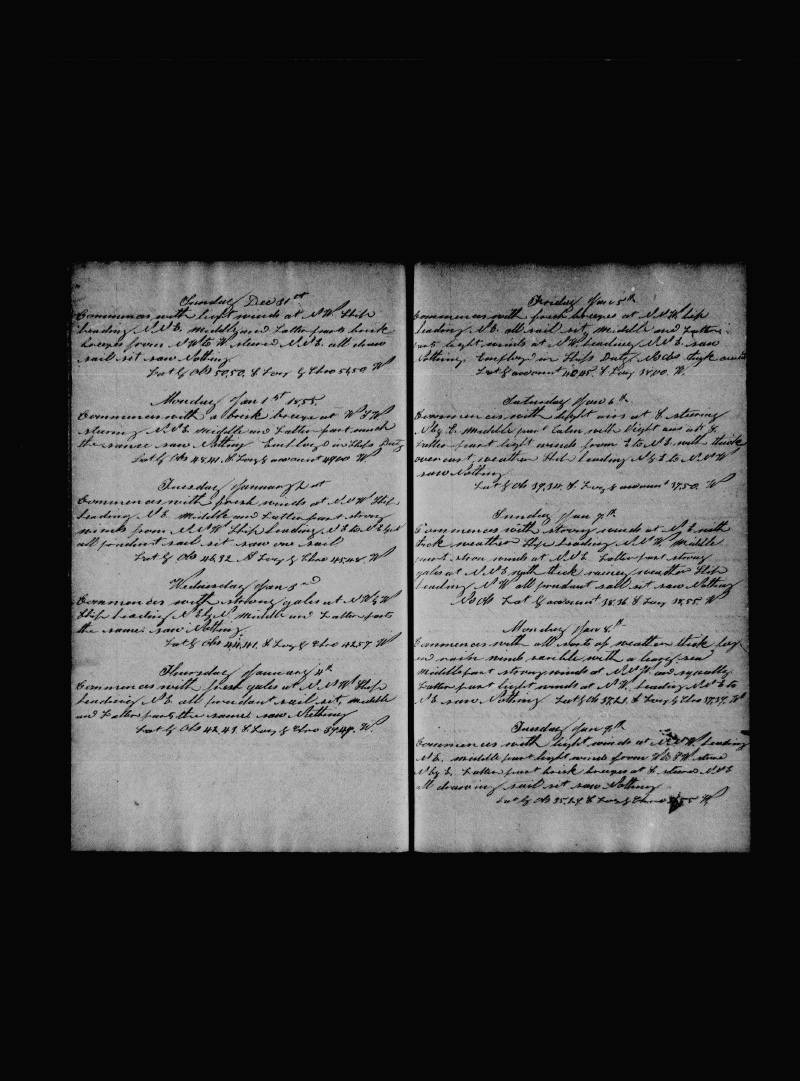 Sunday Dec 31st
Commences with light winds at N W Ship
heading N.N.E. Middle and Latter parts brisk
breezes from N W to W steered N.N.E. all draw
sail sit saw Nothing
Lat by Obs 50,50. S Long by Chro 54,50 W
Monday Jan 1st 1855
Commences with a brisk breeze at W S W
steering N.N.E. Middle and Latter part much
the same saw Nothing Employd in Ships Duty
Lat by Obs 48,41. S Long by account 49,00 W
Tuesday January 2d
Commences with fresh winds at N.N.W Ship
heading N.E. Middle and Latter part strong
winds from N.N.W Ship heading N.E to N.E by N
all prudent sail sit saw one sail
Lat by Obs 46,32 S Long by Chro 45,48 W
Wednesday Jan 3nd
Commences with strong gales at N W by W
Ship heading N.E by N Middle and Latter parts
the same saw Nothing
Lat by Obs 44,41. S Long by Chro 42,57 W
Thursday January 4th
Commences with fresh gales at N.N.W Ship
heading N.E. all prudent sail sit, Middle
and Latter parts the same saw Nothing
Lat by Obs 42,43 S Long by Chro W.
Friday Jan 5th
Commences with fresh breezes at N.N.W Ship
heading N.E. all sail sit, Middle and Latter
parts light winds at N W heading N.N.E. saw
Nothing. Employd in Ships Duty No Obs thick
Lat by account 40,45 S Long 38,00. W.
Saturday Jan 6th
Commences with light airs at S steering
N by E. Middle part Calm with light airs at S
Latter part light winds from E to N E with thick
overcast weather Ship heading N by E to N.N.W
saw Nothing
Lat by Obs 39,34. S Long by account 37,50 W
Sunday Jan 7th
Commences with strong winds at N.E with
thick weather Ship heading N.N.W Middle
part strong winds at N.N.E. Latter part strong
gales at N.N.E with thick rainy weather Ship
heading N W all prudent sail sit saw Nothing
No Obs Lat by account 38,36 S Long 38,55 W
Monday Jan 8th
Commences with all sorts of weather thick fog
and rain wind with a heavy sea
Middle part strong winds at and squally
Latter part light winds at N.W. heading N.N.E to
N.E. saw Nothing Lat by Obs 37,21. S Long by Chro 37,37. W
Tuesday Jan 9th
Commences with light winds at N.N.W. heading
N.E. Middle part light winds from W to S W steered
N by E. Latter part brisk breezes at S steered N.N.E
all drawing sail sit saw Nothing
Lat by Obs 35,27 S Long by Chro W